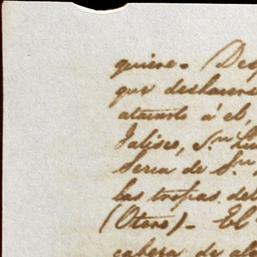 quiere. Des
que deshacer
atacarlo á él,
Jalisco, Sn Lu
Seria de Sn
las tropas del
(Otero). El
cabeza de al